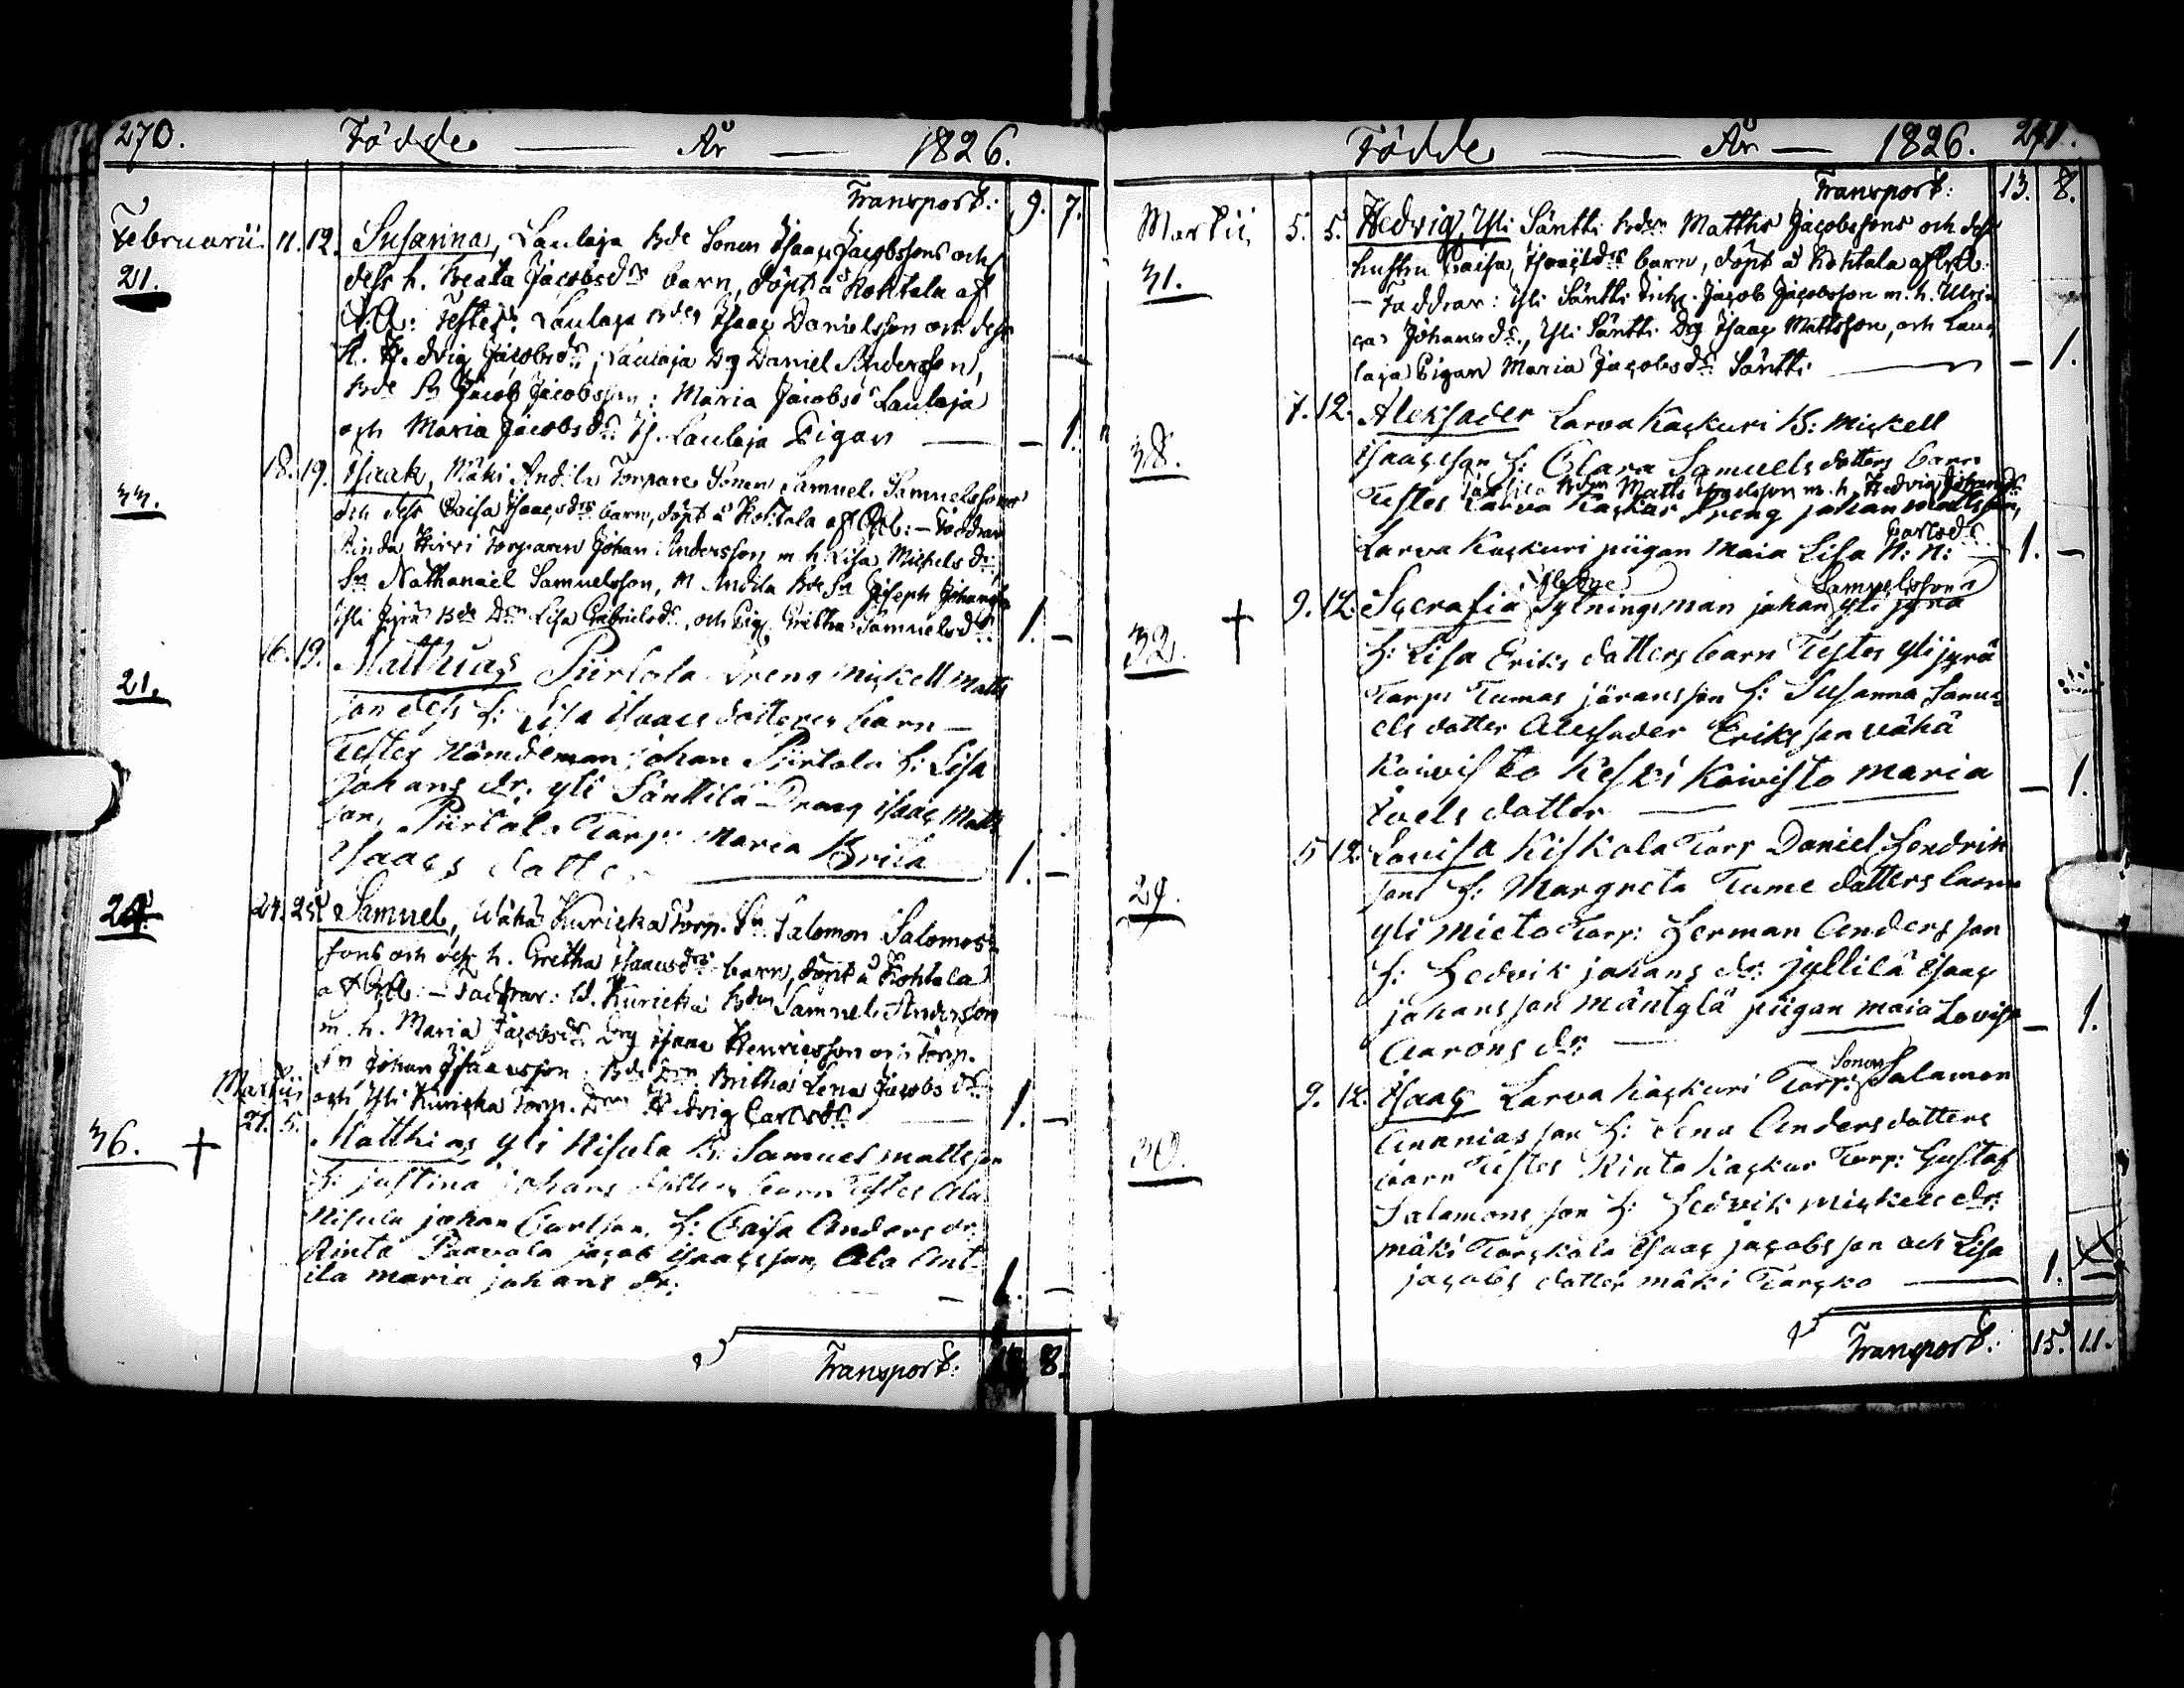 270. Födde — År — 1826.
Transport: 9. 7.
Februarii 11. 12. Susanna, Laulaja Bde Sonen Isaac Jacobssons och
21. dess h. Beata Jacobsdr barn, döpt å Kohtala af
Testes: Laulaja Isaac Danielsson och dess
h. Hedvig Jacobsdr, Laulaja Dg Daniel Andersson,
Bde Sn Jacob Jacobsson: Maria Jacobsd Laulaja
och Maria Jacobsdr Laulaja Pigan — — 1.
18. 19. Isaak, Mäki Andila Torpare Sonen Samuel Samuelssons
33. och dess Caisa Isaacsdrs barn, döpt å Kohtala af — Faddrar
Hirvi Torparen Johan Andersson m. h. Lisa Michelsdr,
Sn Nathanael Samuelsson, Andila Bde Sn Joseph
Yli Jyrä Bde Lisa Gabrielsdr, och Pig. Gretha Samuelsdr 1. —
16. 19. Matthias Piirtola Dreng Mickell Matts
21. son dess h: Lisa Isaacs dotters barn —
Testes Nämdeman Johan Piirtola h: Lisa
Johans dr. yli Säntti Dreng Isaac Matts
son, Piirtola Torp: Maria Brita
Isaacs dotter — 1. —
24. 24. 25. Samuel, Wähä Kuricka Torp. Sn Salomon Salomons
sons och dess h. Gretha Isaacsdrs barn, döpt å Kohtala
af — Faddrar: W. Kuricka Samuel Andersson
m. h. Maria Jacobsdr Dreng Isaac Henricsson och Torp.
Sn Johan Isaacsson: Bde Britha Lena Jacobs dr
Martii och Yli Kuricka Torp. Hedvig Carlsdr 1. —
36. † 27. 5. Matthias yli Nisula B. Samuel mattsson
h: justina johans dotters barn Testes Ala
Nisula johan Carlson, h: Caisa Anders dr:
Rinta Paavola jacob isaacsson, Ala Ant
ila maria johans dr: — 1. —
Transport: 8.
Födde — År — 1826. 271.
Transport: 13. 8.
Martii 5. 5. Hedvig, Yli Säntti Matths Jacobssons och dess
31. hustru Caisa, Isaacsdrs barn, döpt å Kohtala af
— Faddrar: Yli Säntti Jacob Jacobsson m. h. Ulri
ca Johansdr., Yli Säntti Dreng Isaac Mattsson, och Lau
laja Pigan Maria Jacobsdr Säntti — — 1.
7. 12. Aleksader Larva Kackuri B: Mickell
38. Isaacsson h: Clara Samuels dotters barn
Matts m. h. Hedvig Johansdr
Testes Larva Kackur Dreng johan mattsson,
Carlsdr
Larva Kackuri piigan Maia Lisa N: N: — 1. —
Samuelssons
† 9. 12. Serafia Sytningsman johan yli jyrä
32. h: Lisa Eriks dotters barn Testes yli jyrä
Torp: Tumas jöransson h: Susanna Samu
els dotter Alexsader Eriksson vähä
Koivisto Keski Koivisto maria
ioels dotter — — 1.
5. 12. Lovisa Kiskola Torp Daniel Hendrik
29. sons h: Margreta Tume dotters barn
yli mieto Torp: Herman Andersson
h: Hedvik johans dr: jyllilä Isaac
johansson mäntylä piigan maia Lovisa — 1.
Aarons dr: —
Sonen
9. 12. Isaac Larva Kackuri Torp: Salamon
30. Ananias son h: Lena Anders dotters
barn Testes Rinta Kackur Torp: Gustaf
Salamons son h: Hedvik Mickels dr:
mäki Torckola Isaac jacobsson och Lisa
jacobs dotter mäki Torcko — 1. —
Transport: 15. 11.